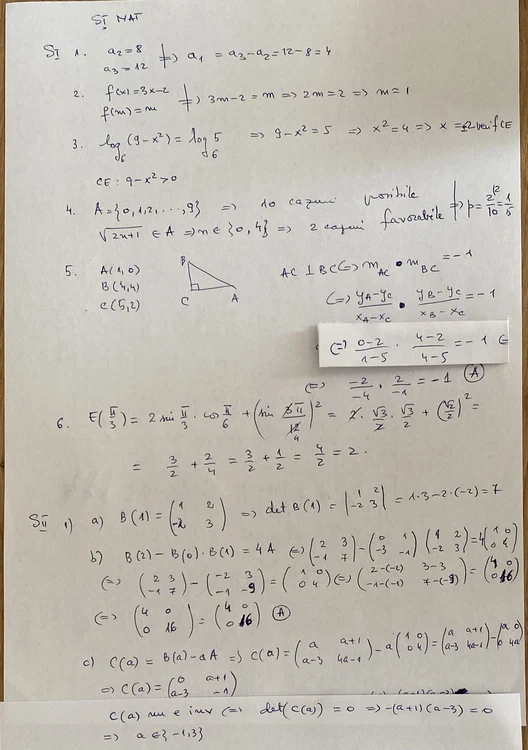 SI NAT
SI 1. a₂=8
a₃=12 => a₁ = a₃-a₂=12-8=4
2. f(x)=3x-2
f(m)=m => 3m-2=m => 2m=2 => m=1
3. log₆(9-x²) = log₆5 => 9-x²=5 => x²=4 => x=±2 verif CE
CE: 9-x²>0
4. A={0,1,2,...,9} => 10 cazuri posibile
√2n+1 ∈ A => n∈{0,4} => 2 cazuri favorabile => p=2/10=1/5
5. A(1,0)
B(4,4)
C(5,2)
B
C A
AC ⊥ BC (=) m_AC • m_BC = -1
(=) (y_A-y_C)/(x_A-x_C) • (y_B-y_C)/(x_B-x_C) = -1
(=) (0-2)/(1-5) · (4-2)/(4-5) = -1
(=) -2/-4 · 2/-1 = -1 (A)
6. E(π/3) = 2 sin π/3 · cos π/6 + (sin 3π/12)² = 2·√3/2·√3/2 + (√2/2)² =
= 3/2 + 2/4 = 3/2 + 1/2 = 4/2 = 2.
SII 1) a) B(1) = (1 2; -2 3) => det B(1) = |1 2; -2 3| = 1·3-2·(-2)=7
b) B(2)-B(0)·B(1) = 4A (=) (2 3; -1 7) - (0 1; -3 -1)(1 2; -2 3) = 4(1 0; 0 4)
(=) (2 3; -1 7) - (-2 3; -1 -9) = (1 0; 0 4) (=) (2-(-2) 3-3; -1-(-1) 7-(-9)) = (4 0; 0 16)
(=) (4 0; 0 16) = (4 0; 0 16) (A)
c) C(a) = B(a)-aA => C(a) = (a a+1; a-3 4a-1) - a(1 0; 0 4) = (a a+1; a-3 4a-1) - (a 0; 0 4a)
=> C(a) = (0 a+1; a-3 -1)
C(a) nu e inv (=) det(C(a)) = 0 => -(a+1)(a-3) = 0
=> a∈{-1,3}